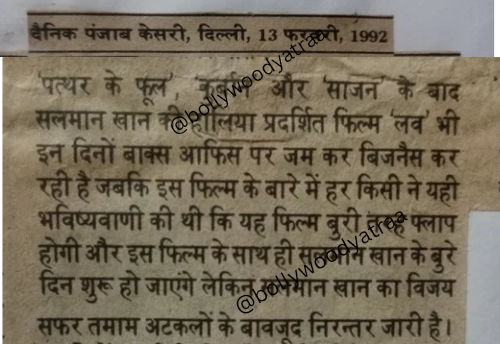 दैनिक पंजाब केसरी, दिल्ली, 13 फरवरी, 1992
'पत्थर के फूल', 'कुर्बान' और 'साजन' के बाद
सलमान खान की हालिया प्रदर्शित फिल्म 'लव' भी
इन दिनों बाक्स आफिस पर जम कर बिजनैस कर
रही है जबकि इस फिल्म के बारे में हर किसी ने यही
भविष्यवाणी की थी कि यह फिल्म बुरी तरह फ्लाप
होगी और इस फिल्म के साथ ही सलमान खान के बुरे
दिन शुरू हो जाएंगे लेकिन सलमान खान का विजय
सफर तमाम अटकलों के बावजूद निरन्तर जारी है।
@bollywoodyatraa
@bollywoodyatraa